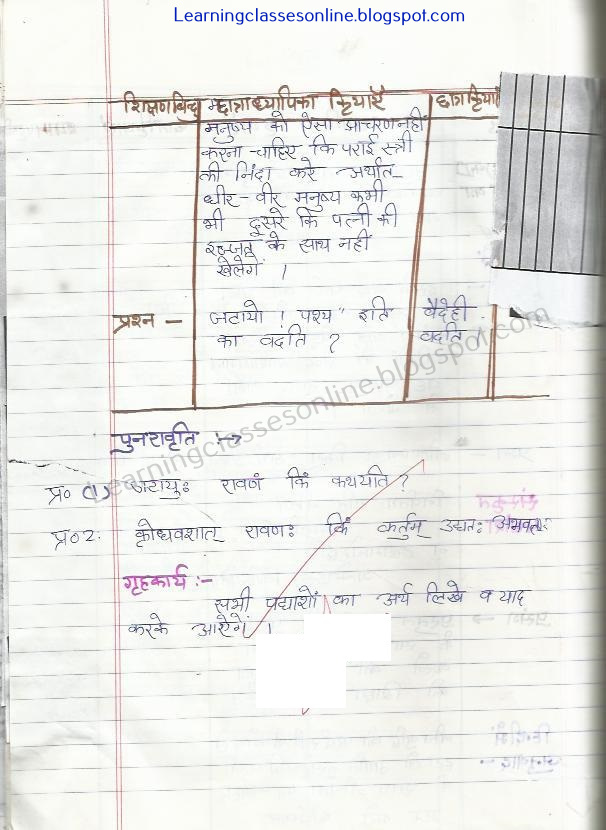 Learningclassesonline.blogspot.com
शिक्षणबिन्दु छात्राध्यापिका क्रियाऐं छात्रा क्रियाऐं
मनुष्य को ऐसा आचरण नही
करना चाहिए कि पराई स्त्री
की निंदा करे अर्थात
धीर-वीर मनुष्य कभी
भी दूसरे कि पत्नी की
इज्जत के साथ नहीं
खेलेगें ।
प्रश्न - जटायो । पश्य" इति वैदेही
का वदति ? वदति
Learningclassesonline.blogspot.com
पुनरावृति :→
प्र० (1) जटायुः रावणं किं कथयति ?
प्र०2. क्रोधवशात् रावणः किं कर्तुम् उद्यतः अभवत्
गृहकार्य :-
सभी पद्याशों का अर्थ लिखे व याद
करके आऐगें ।